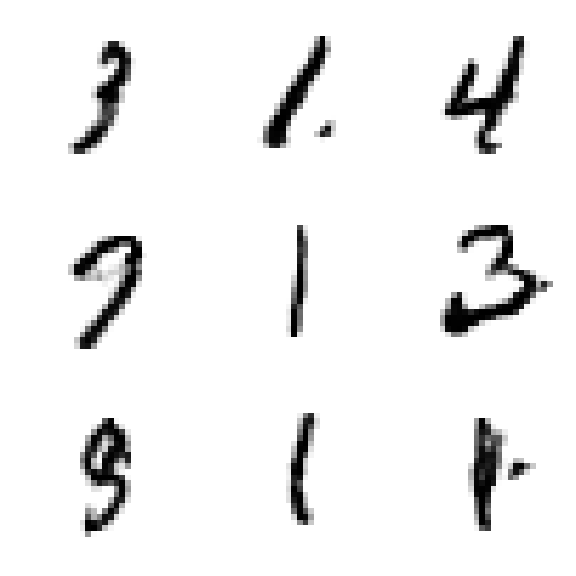 3 1. 4
7 1 3
9 1 1